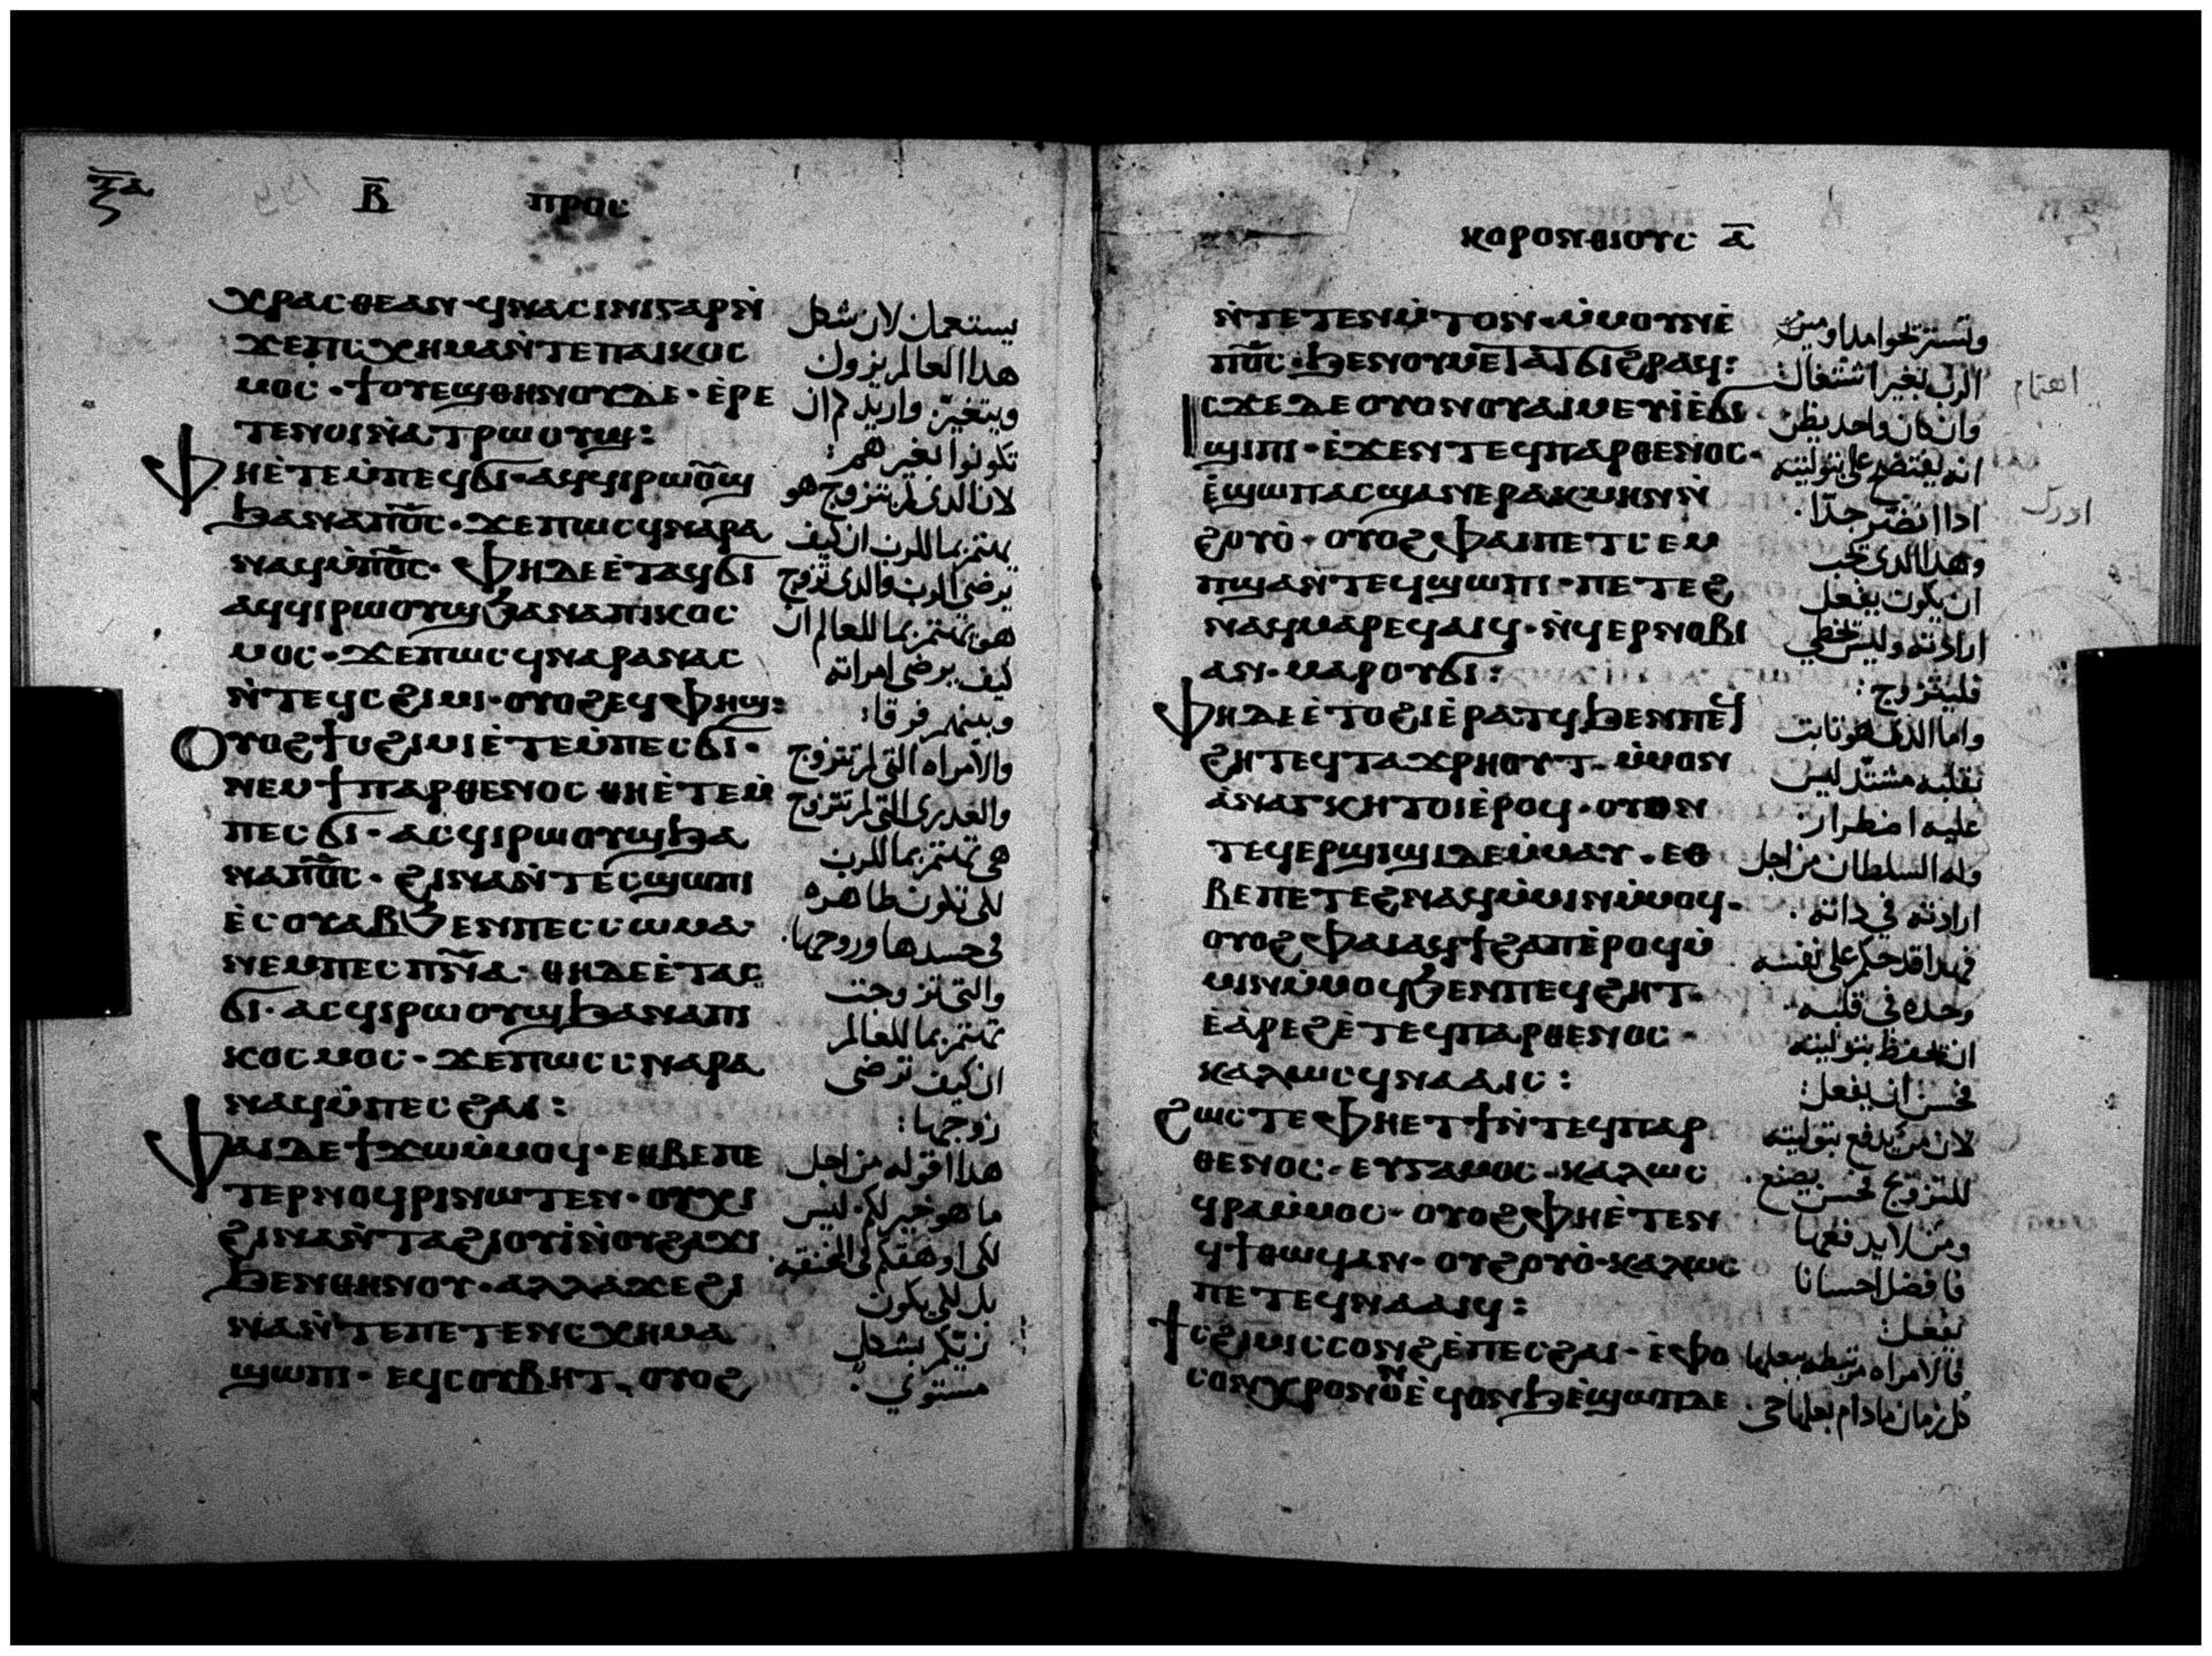 ⲣ̅ⲁ̅
ⲃ̅ ⲡⲣⲟⲥ
ⲭⲣⲁⲥⲑⲉⲁⲛ · ϥⲛⲁⲥⲓⲛⲓⲅⲁⲣⲛ̀
ϫⲉⲡⲓⲥⲭⲏⲙⲁⲛ̀ⲧⲉⲡⲁⲓⲕⲟⲥ
ⲙⲟⲥ · ϯⲟⲩⲉϣⲑⲏⲛⲟⲩⲇⲉ · ⲉ̀ⲣⲉ
ⲧⲉⲛⲟⲓⲛ̀ⲁⲧⲣⲱⲟⲩϣ :
ⲫⲏⲉ̀ⲧⲉⲙ̀ⲡⲉϥϭⲓ · ⲁϥϥⲓⲣⲱⲟⲩϣ
ϧⲁⲛⲁⲡⲟ̅ⲥ̅ · ϫⲉⲡⲱⲥϥⲛⲁⲣⲁ
ⲛⲁϥⲙ̀ⲡⲟ̅ⲥ̅ · ⲫⲏⲇⲉⲉ̀ⲧⲁϥϭⲓ
ⲁϥϥⲓⲣⲱⲟⲩϣϧⲁⲛⲁⲡⲓⲕⲟⲥ
ⲙⲟⲥ · ϫⲉⲡⲱⲥϥⲛⲁⲣⲁⲛⲁⲥ
ⲛ̀ⲧⲉϥⲥϩⲓⲙⲓ · ⲟⲩⲟϩⲉϥⲫⲏϣ :
ⲟⲩⲟϩϯⲥϩⲓⲙⲓⲉ̀ⲧⲉⲙ̀ⲡⲉⲥϭⲓ ·
ⲛⲉⲙϯⲡⲁⲣⲑⲉⲛⲟⲥ ⲑⲏⲉ̀ⲧⲉⲙ̀
ⲡⲉⲥϭⲓ · ⲁⲥϥⲓⲣⲱⲟⲩϣϧⲁ
ⲛⲁⲡⲟ̅ⲥ̅ · ϩⲓⲛⲁⲛ̀ⲧⲉⲥϣⲱⲡⲓ
ⲉ̀ⲥⲟⲩⲁⲃϧⲉⲛⲡⲉⲥⲥⲱⲙⲁ ·
ⲛⲉⲙⲡⲉⲥⲡⲛ̅ⲁ̅ · ⲑⲏⲇⲉⲉ̀ⲧⲁⲥ
ϭⲓ · ⲁⲥϥⲓⲣⲱⲟⲩϣϧⲁⲛⲁⲡⲓ
ⲕⲟⲥⲙⲟⲥ · ϫⲉⲡⲱⲥⲥⲛⲁⲣⲁ
ⲛⲁϥⲙ̀ⲡⲉⲥϩⲁⲓ :
ⲫⲁⲓⲇⲉϯϫⲱⲙ̀ⲙⲟϥ · ⲉⲑⲃⲉⲡⲉ
ⲧⲉⲣⲛⲟϥⲣⲓⲛⲱⲧⲉⲛ · ⲟⲩⲭⲓ
ϩⲓⲛⲁⲛ̀ⲧⲁϩⲓⲟⲩⲓ̀ⲛ̀ⲟⲩϩⲁϫⲓ
ϧⲉⲛⲑⲏⲛⲟⲩ · ⲁⲗⲗⲁϫⲉϩⲓ
ⲛⲁⲛ̀ⲧⲉⲡⲉⲧⲉⲛⲥⲭⲏⲙⲁ
ϣⲱⲡⲓ · ⲉϥⲥⲟⲩⲃⲏⲧ · ⲟⲩⲟϩ
يستعملن لان شكل
هذا العالم يزول
ويتغير واريدكم ان
تكونوا بغير هم :
لان الذى لم يتزوج هو
يهتم بما للرب ان كيف
يرضى الرب والذى تزوج
هو يهتم بما للعالم ان
كيف يرضى امراته
وبينهم فرقا :
والامراه التى لم تتزوج
والعدرى التى لم تتزوج
هى تهتم بما للرب
لكى تكون طاهره
فى جسدها وروحها .
والتى تزوجت
تهتم بما للعالم
ان كيف ترضى
زوجها :
هذا اقوله من اجل
ما هو خير لكم ليس
لكى اوهقكم فى الخنقه
بل لكى يكون
زيكم بشكل
مستوى .
ⲕⲟⲣⲟⲛⲑⲓⲟⲩⲥ ⲁ̅
ⲛ̀ⲧⲉⲧⲉⲛⲙ̀ⲧⲟⲛ · ⲙ̀ⲙⲟⲩⲛⲉ̀
ⲡⲟ̅ⲥ̅ · ϧⲉⲛⲟⲩⲙⲉⲧⲁⲧϭⲓϩⲣⲁϥ :
ⲓⲥϫⲉⲇⲉⲟⲩⲟⲛⲟⲩⲁⲓⲙⲉⲩⲓ̀ⲉ̀ϭⲓ
ϣⲓⲡⲓ · ⲉ̀ϫⲉⲛⲧⲉϥⲡⲁⲣⲑⲉⲛⲟⲥ ·
ⲉ̀ϣⲱⲡⲁⲥϣⲁⲛⲉⲣⲁⲕⲙⲏⲛⲛ̀
ϩⲟⲩⲟ̀ · ⲟⲩⲟϩⲫⲁⲓⲡⲉⲧⲥⲉⲙ
ⲡϣⲁⲛ̀ⲧⲉϥϣⲱⲡⲓ · ⲡⲉⲧⲉϩ
ⲛⲁϥⲙⲁⲣⲉϥⲁⲓϥ · ⲛ̀ϥⲉⲣⲛⲟⲃⲓ
ⲁⲛ · ⲙⲁⲣⲟⲩϭⲓ :
ⲫⲏⲇⲉⲉ̀ⲧⲟϩⲓⲉ̀ⲣⲁⲧϥϧⲉⲛⲡⲉϥ
ϩⲏⲧⲉϥⲧⲁϫⲣⲏⲟⲩⲧ · ⲙ̀ⲙⲟⲛ
ⲁ̀ⲛⲁⲅⲕⲏⲧⲟⲓⲉ̀ⲣⲟϥ · ⲟⲩⲟⲛ
ⲧⲉϥⲉⲣϣⲓϣⲓⲇⲉⲙ̀ⲙⲁⲩ · ⲉⲑ
ⲃⲉⲡⲉⲧⲉϩⲛⲁϥⲙ̀ⲙⲓⲛⲙ̀ⲙⲟϥ ·
ⲟⲩⲟϩⲫⲁⲓⲁϥϯϩⲁⲡⲉ̀ⲣⲟϥⲙ̀
ⲙⲓⲛⲙ̀ⲙⲟϥϧⲉⲛⲡⲉϥϩⲏⲧ ·
ⲉ̀ⲁ̀ⲣⲉϩⲉ̀ⲧⲉϥⲡⲁⲣⲑⲉⲛⲟⲥ ·
ⲕⲁⲗⲱⲥϥⲛⲁⲁⲓⲥ :
ϩⲱⲥⲧⲉⲫⲏⲉⲧϯⲛ̀ⲧⲉϥⲡⲁⲣ
ⲑⲉⲛⲟⲥ · ⲉⲩⲅⲁⲙⲟⲥ · ⲕⲁⲗⲱⲥ
ϥⲣⲁⲙ̀ⲙⲟⲥ · ⲟⲩⲟϩⲫⲏⲉ̀ⲧⲉⲛ
ϥϯⲙ̀ⲙⲟⲥⲁⲛ · ⲟⲩϩⲟⲩⲟ̀ · ⲕⲁⲗⲱⲥ
ⲡⲉⲧⲉϥⲛⲁⲁⲓϥ :
ϯⲥϩⲓⲙⲓⲥⲥⲟⲛϩⲉ̀ⲡⲉⲥϩⲁⲓ · ⲉ̀ⲫⲟ
ⲥⲟⲛⲭⲣⲟⲛⲟⲛⲉ̀ϥⲟⲛϧ ⲉ̀ϣⲱⲡⲇⲉ
الرب بغير اشتغال
وان كان واحد يظن
انه يفتضح على بتوليته
وهذا الذى يجب
ان يكون يفعل
ارادته وليس يخطى
فليتزوج :
واما الذى هو ثابت
بقلبه مشتد ليس
عليه اضطرار .
وله السلطان من اجل
ارادته فى ذاته .
فهذا قد حكم على نفسه
وحده فى قلبه .
ان يحفظ بتوليته
فحسن ان يفعل :
لان من يدفع بتوليته
للتزويج فحسن يصنع .
ومن لا يدفعها
فافضل احسانا
يفعل :
فالامراه مرتبطه ببعلها
كل زمان مادام بعلها حى
اهتمام
ادرك